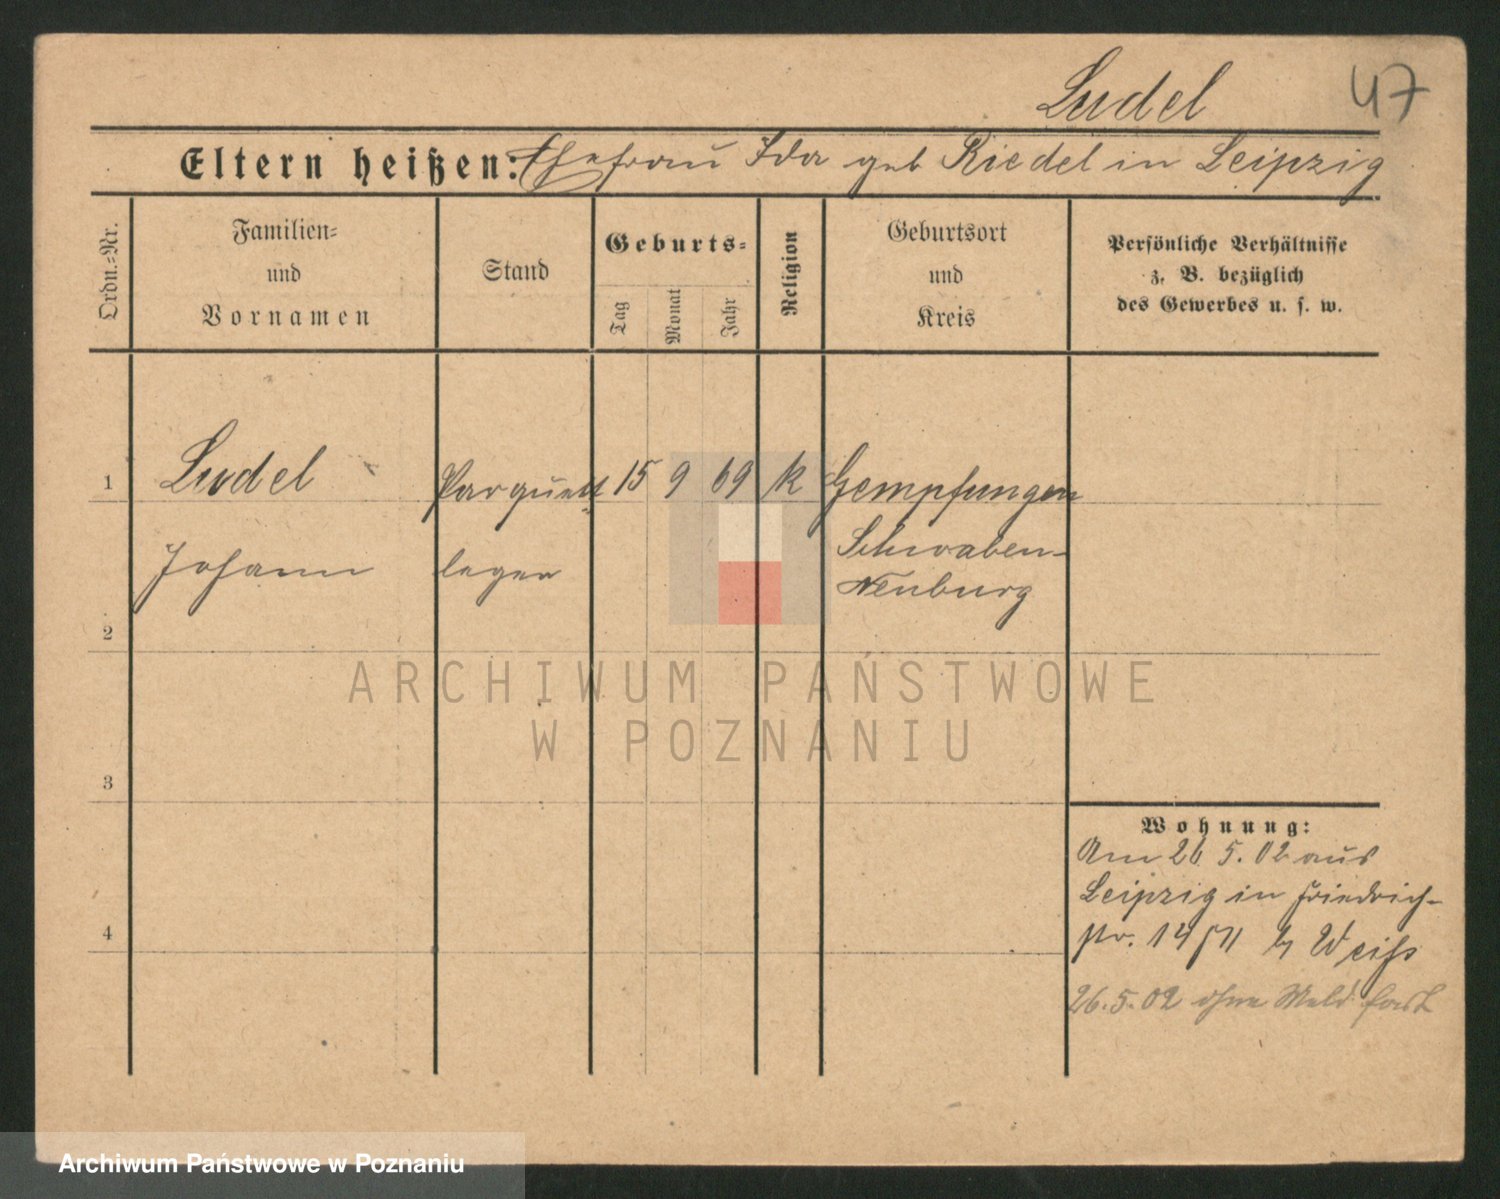 Ludel 47
Eltern heißen: Ehefrau Ida geb Riedel in Leipzig
Ordn.=Nr.
Familien=
und
Vornamen
Stand
Geburts=
Tag
Monat
Jahr
Religion
Geburtsort
und
Kreis
Persönliche Verhältnisse
z. B. bezüglich
des Gewerbes u. s. w.
1 Ludel Parquett 15 9 69 k Gempfungen
Schwaben-
Johann leger Neuburg
2
ARCHIWUM PAŃSTWOWE
W POZNANIU
3
Wohnung:
Am 26 5. 02 aus
Leipzig in Friedrich-
4
str. 14 b Weiß
26.5.02 ohne Meld fort
Archiwum Państwowe w Poznaniu